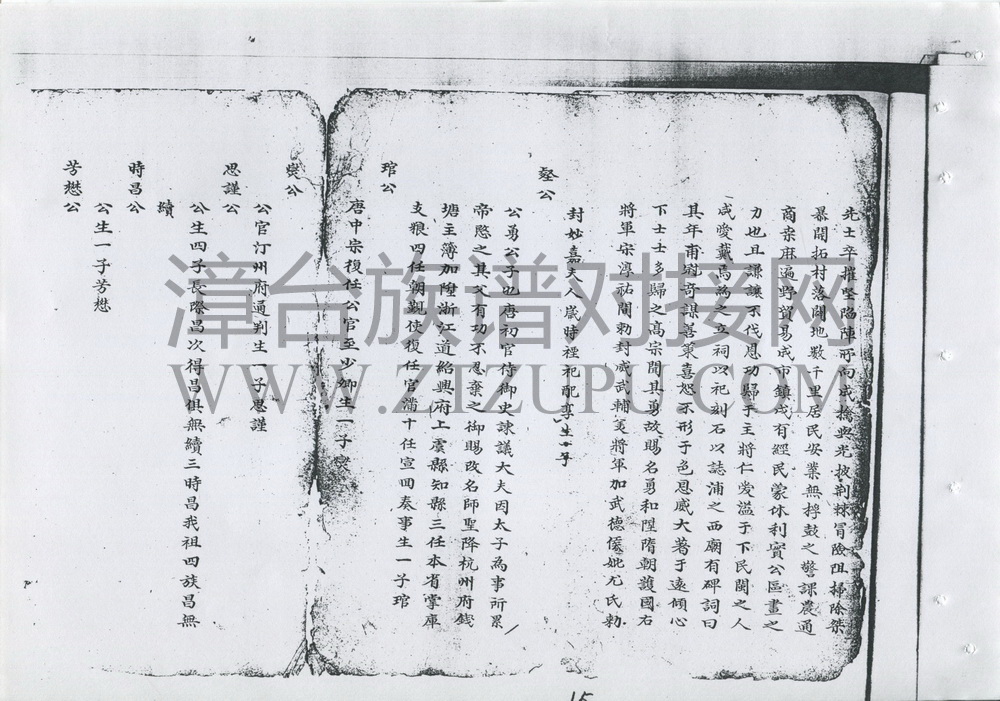 先士卒摧堅陷陣所向成擒與光披荆棘冒險阻掃除桀
暴開拓村落闢地數千里居民安業無桴鼓之警課農通
商桑麻遍野貿易成市鎮戍有經民蒙休利實公區畫之
力也且謙讓不伐恩功歸于主將仁愛溢于下民閩之人
咸愛戴焉為之立祠以祀刻石以誌浦之西廟有碑詞曰
其年甫冠奇謀善策喜怒不形于色恩威大著于遠傾心
下士士多歸之高宗聞其勇故賜名勇和陞隋朝護國右
將軍宋淳祐間勅封威武輔美將軍加武德侯妣尤氏勅
封妙嘉夫人歲時禋祀配享生一子
壑公
公勇公子也唐初官侍御史諫議大夫因太子為事所累
帝愍之其父有功不忍棄之御賜改名師聖降杭州府錢
塘主簿加陞浙江道紹興府上虞縣知縣三任本省掌庫
支粮四任朝覲使復任官滿十任宣回奏事生一子琯
琯公
唐中宗復任公官至少卿生一子燮
燮公
公官汀州府通判生一子思謹
思謹公
公生四子長際昌次得昌俱無續三時昌我祖四族昌無
續
時昌公
公生一子芳懋
芳懋公
漳台族谱对接网
WWW.ZIZUPU.COM
15